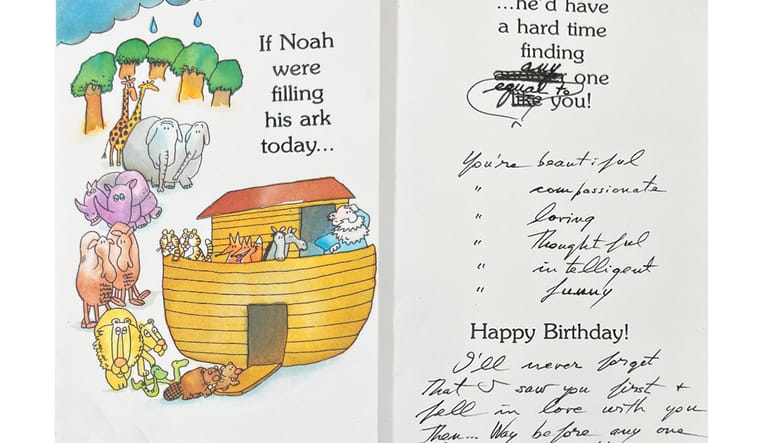 If Noah
were
filling
his ark
today...
...he'd have
a hard time
finding
any one
equal to
you!
You're beautiful
" compassionate
" loving
" Thoughtful
" intelligent
" funny
Happy Birthday!
I'll never forget
That I saw you first +
fell in love with you
Then... Way before any one